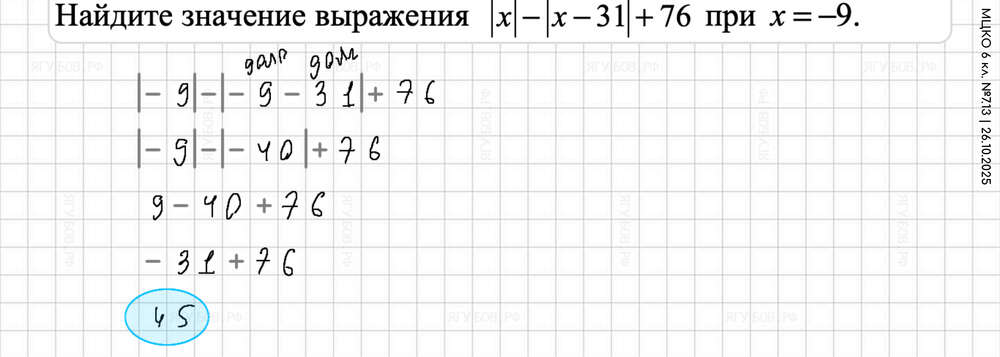 Найдите значение выражения |x|−|x−31|+76 при x=−9.
долг долг
|−9|−|−9−31|+76
|−9|−|−40|+76
9−40+76
−31+76
45
МЦКО 6 кл. №7.13 | 26.10.2025
ЯГУБОВ.РФ